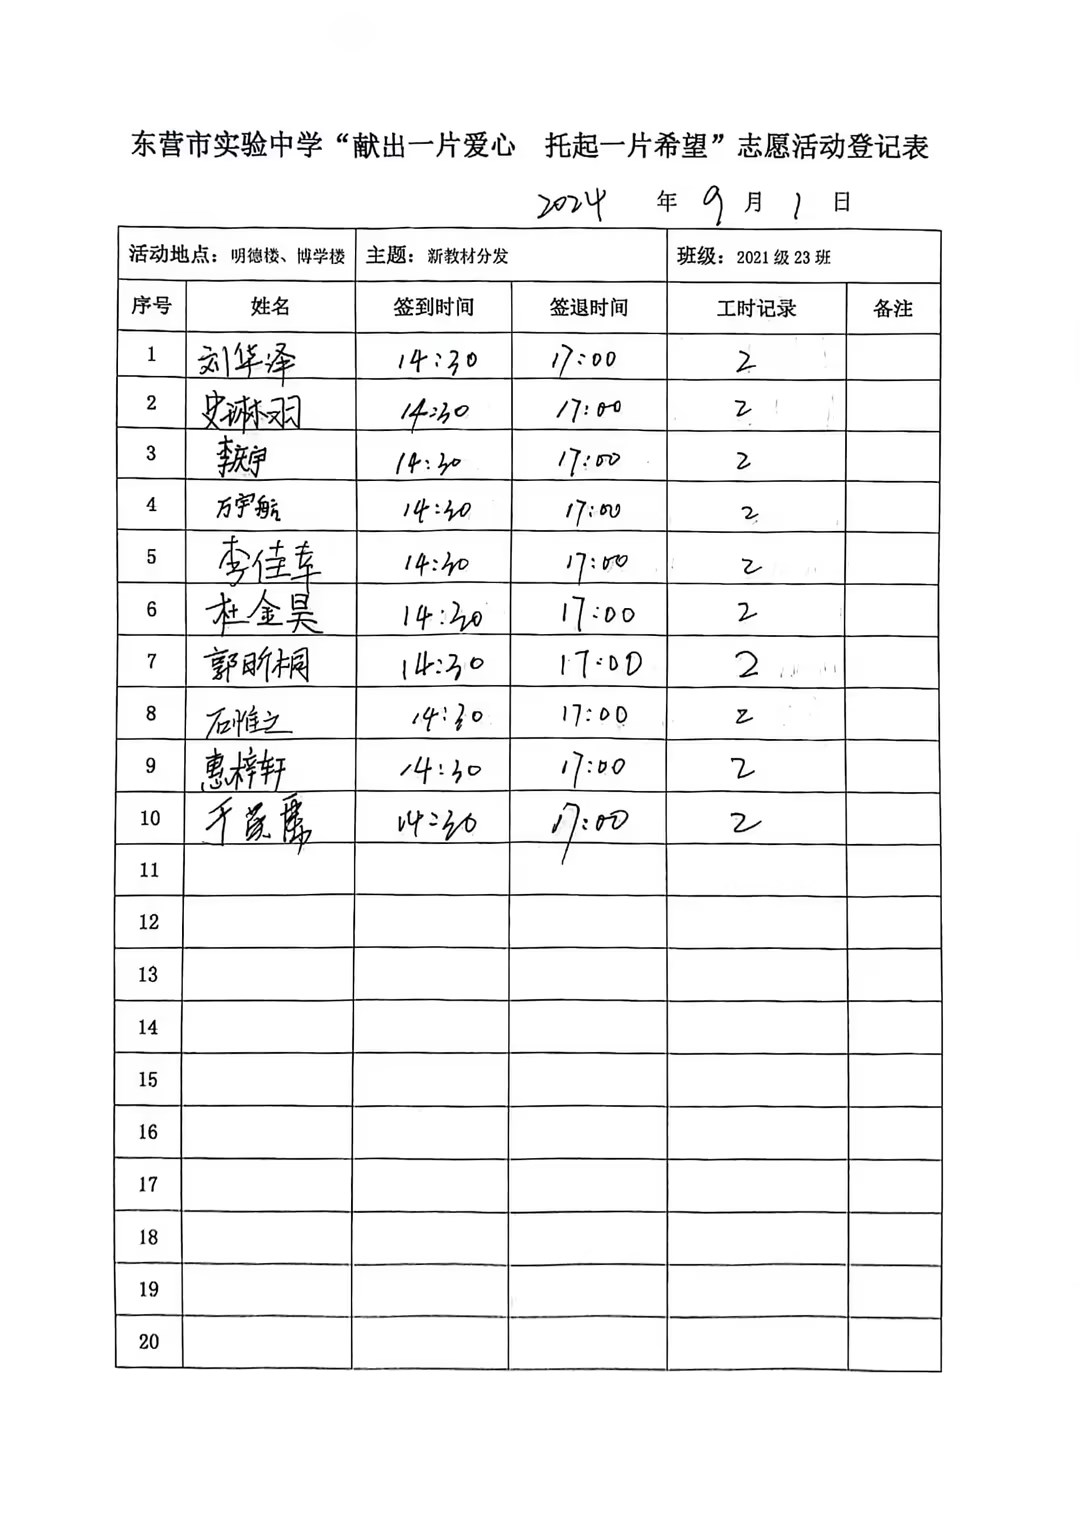 东营市实验中学“献出一片爱心 托起一片希望”志愿活动登记表
2024 年 9 月 1 日
活动地点：明德楼、博学楼 主题：新教材分发 班级：2021级23班
序号 姓名 签到时间 签退时间 工时记录 备注
1 刘华泽 14:30 17:00 2
2 史琳羽 14:30 17:00 2
3 李庆宇 14:30 17:00 2
4 万宇航 14:30 17:00 2
5 李佳 14:30 17:00 2
6 杜金昊 14:30 17:00 2
7 郭昕桐 14:30 17:00 2
8 石惟之 14:30 17:00 2
9 惠梓轩 14:30 17:00 2
10 14:30 17:00 2
11
12
13
14
15
16
17
18
19
20